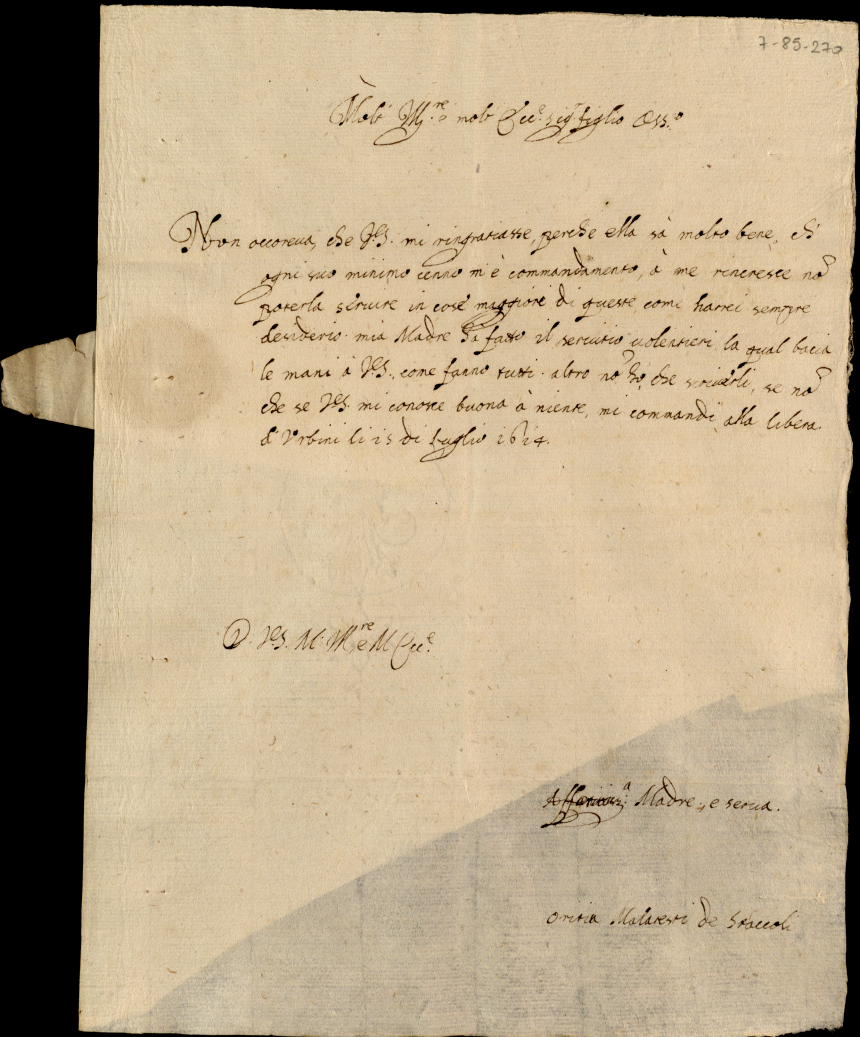 7-85-270
Molt' Ill.re e molt' Ecc.e sig.r figlio Oss.o
Non occoreva, che V.S. mi ringratiasse, perche ella sà molto bene, ch'
ogni suo minimo cenno m'è commandamento, à me rincresce nō
poterla servire in cose maggiori di queste come harrei sempre
desiderio. mia Madre hà fatto il servitio volentieri la qual bacia
le mani à V.S., come fanno tutti. altro nō hò, che scriverli, se nō
che se V.S. mi conosce buona à niente, mi commandi alla libera.
d' Urbini li 15 di luglio 1614.
D. V.S. M. Ill.re e M Ecc.e
Madre, e serva.
Oritia Malatesti de Staccoli